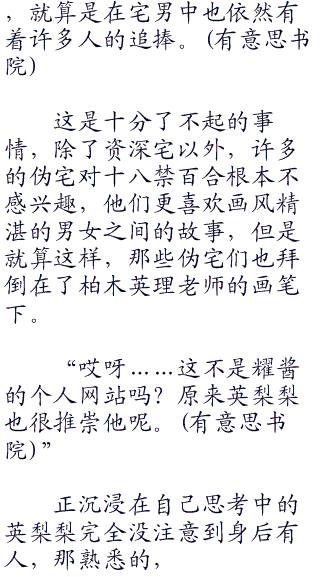 ，就算是在宅男中也依然有
着许多人的追捧。（有意思书
院）
这是十分了不起的事
情，除了资深宅以外，许多
的伪宅对十八禁百合根本不
感兴趣，他们更喜欢画风精
湛的男女之间的故事，但是
就算这样，那些伪宅们也拜
倒在了柏木英理老师的画笔
下。
“哎呀……这不是耀酱
的个人网站吗？原来英梨梨
也很推崇他呢。（有意思书
院）”
正沉浸在自己思考中的
英梨梨完全没注意到身后有
人，那熟悉的，